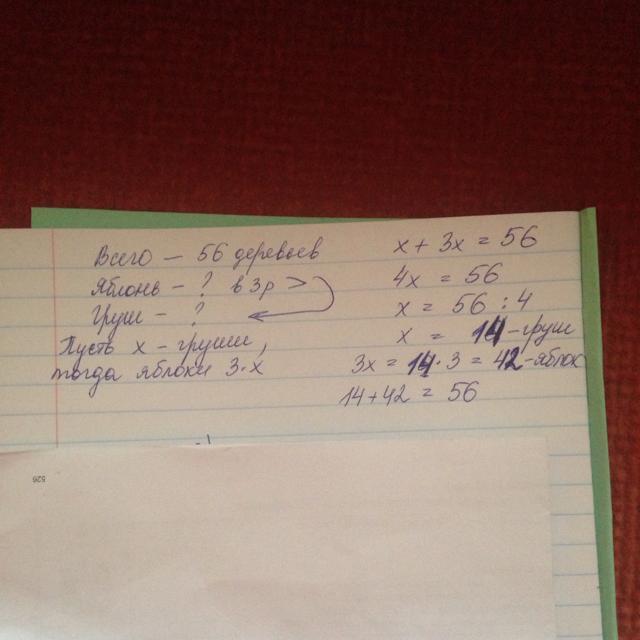 Всего — 56 деревьев
Яблонь - ? в 3р >
Груш - ?
Пусть x - груши,
тогда яблоки 3·x
x + 3x = 56
4x = 56
x = 56 : 4
x = 14 - груш
3x = 14·3 = 42 - яблок
14 + 42 = 56
526